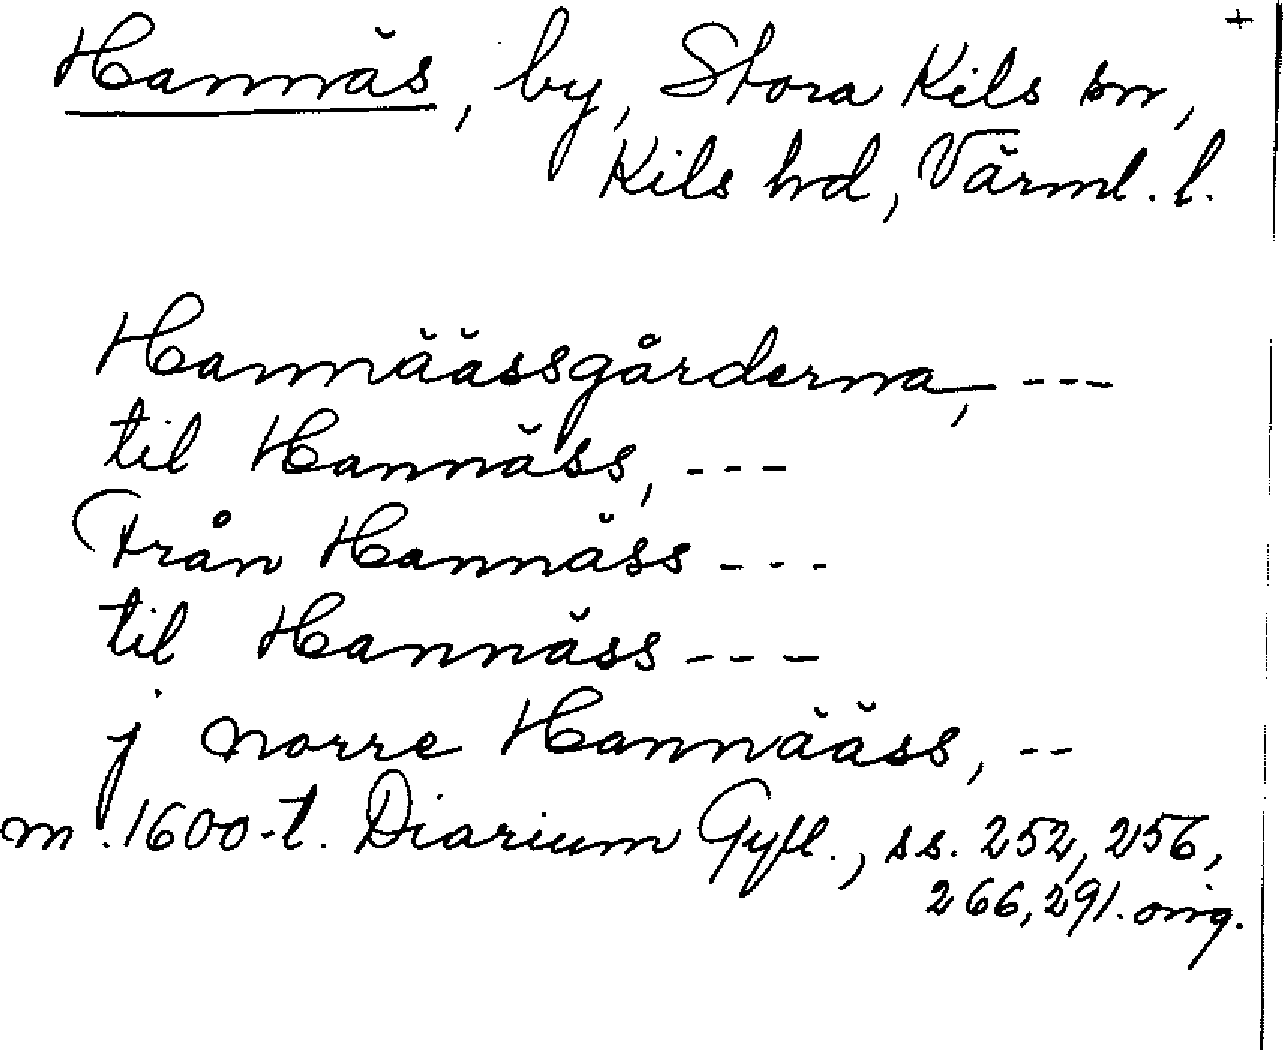 +
Hannäs, by, Stora Kils sn,
Kils hd, Värml. l.
Hannäässgårderna, ---
til Hannäss, ---
Från Hannäss ---
til Hannäss ---
j norre Hannääss, --
m. 1600-t. Diarium Gyll., ss. 252, 256,
266, 291. orig.